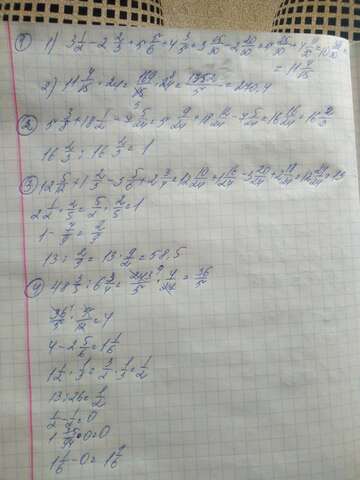 ① 1) 3 1/2 - 2 2/3 + 5 5/6 + 4 3/5 = 3 15/30 - 2 20/30 + 5 25/30 + 4 18/30 = 10 38/30 =
= 11 4/15
2) 11 4/15 · 24 = 169/15 · 24 = 1352/5 = 270,4
② 5 3/8 + 18 1/2 - 7 5/24 = 5 9/24 + 18 12/24 - 7 5/24 = 16 16/24 = 16 2/3
16 2/3 : 16 2/3 = 1
③ 12 5/12 + 1 2/3 - 3 5/6 + 2 3/4 = 12 10/24 + 1 16/24 - 3 20/24 + 2 18/24 = 12 24/24 = 13
2 1/2 · 2/5 = 5/2 · 2/5 = 1
1 - 7/9 = 2/9
13 : 2/9 = 13 · 9/2 = 58,5
④ 48 3/5 : 6 3/4 = 243/5 · 4/27 = 36/5
36/5 · = 4
4 - 2 5/6 = 1 1/6
1 1/2 · 1/3 = 3/2 · 1/3 = 1/2
13 : 26 = 1/2
1/2 - 1/2 = 0
· 0 = 0
1 1/6 - 0 = 1 1/6